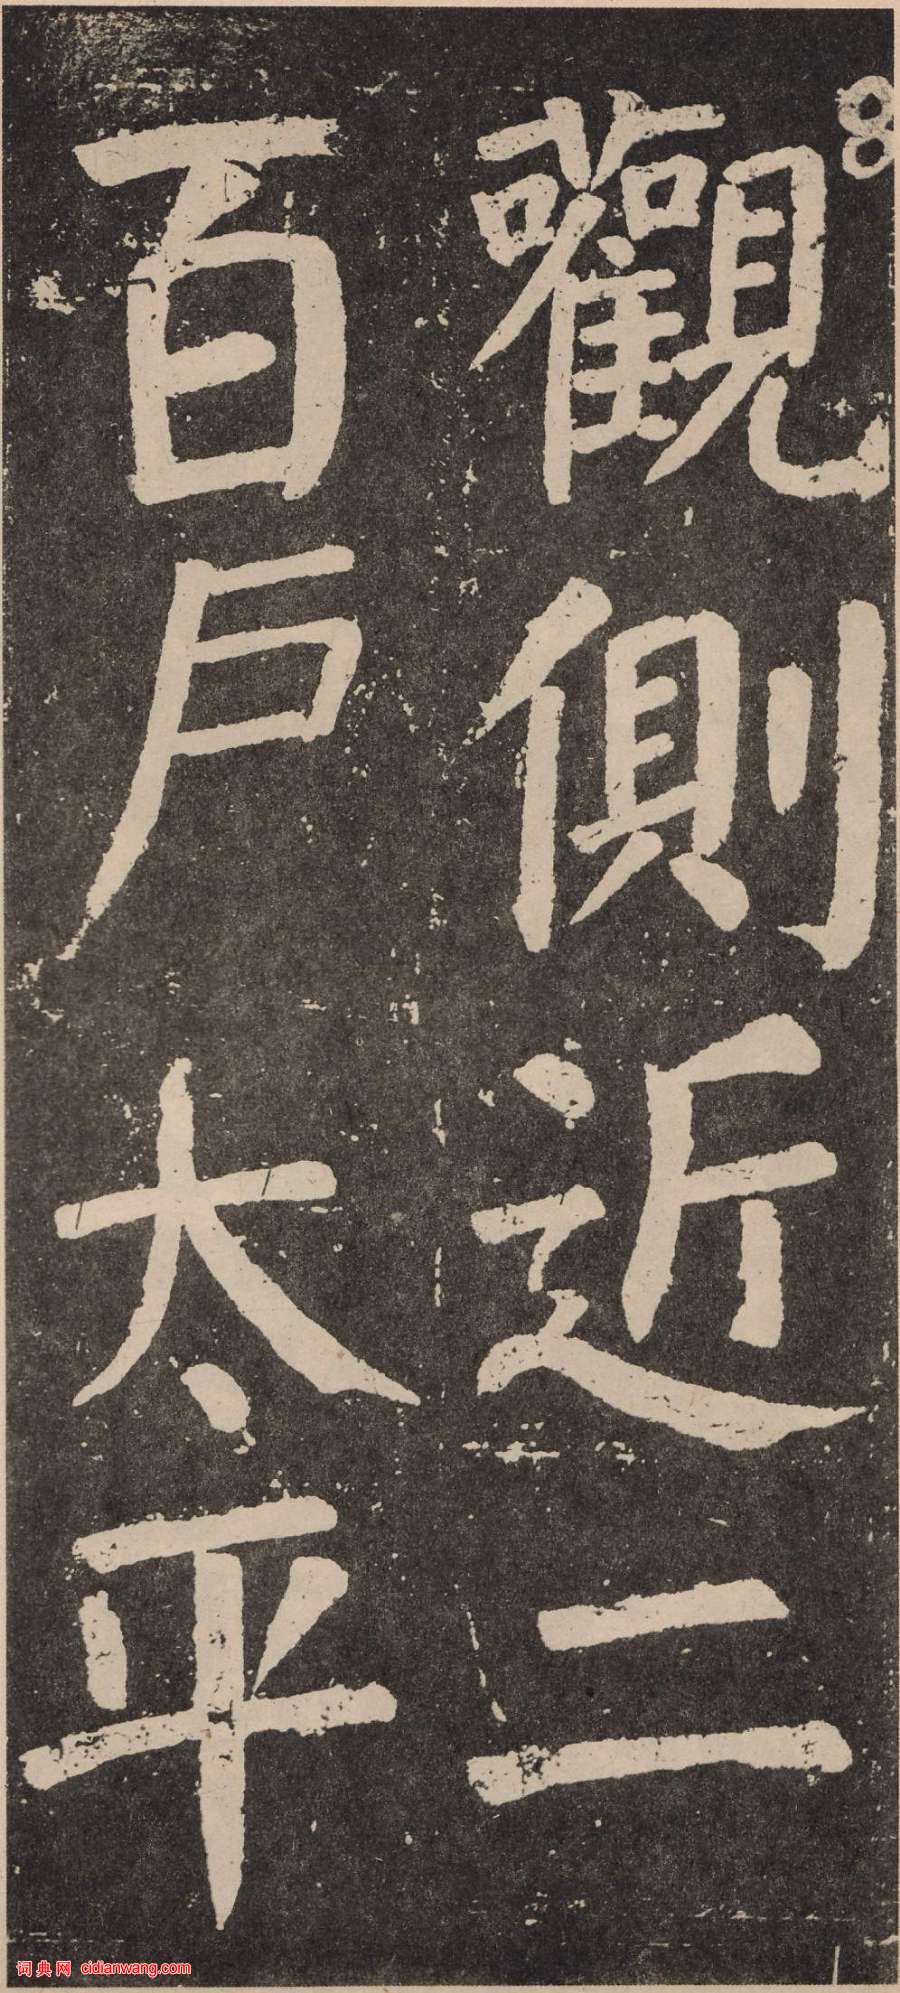 觀側近二
百戶太平
词典网 cidianwang.com